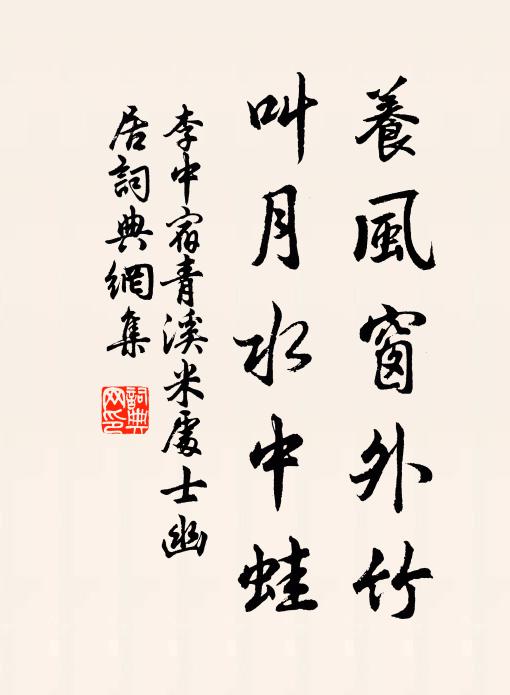 養風窗外竹
叫月水中蛙
李中宿青溪米處士幽
居詞典網集
詞典
網印